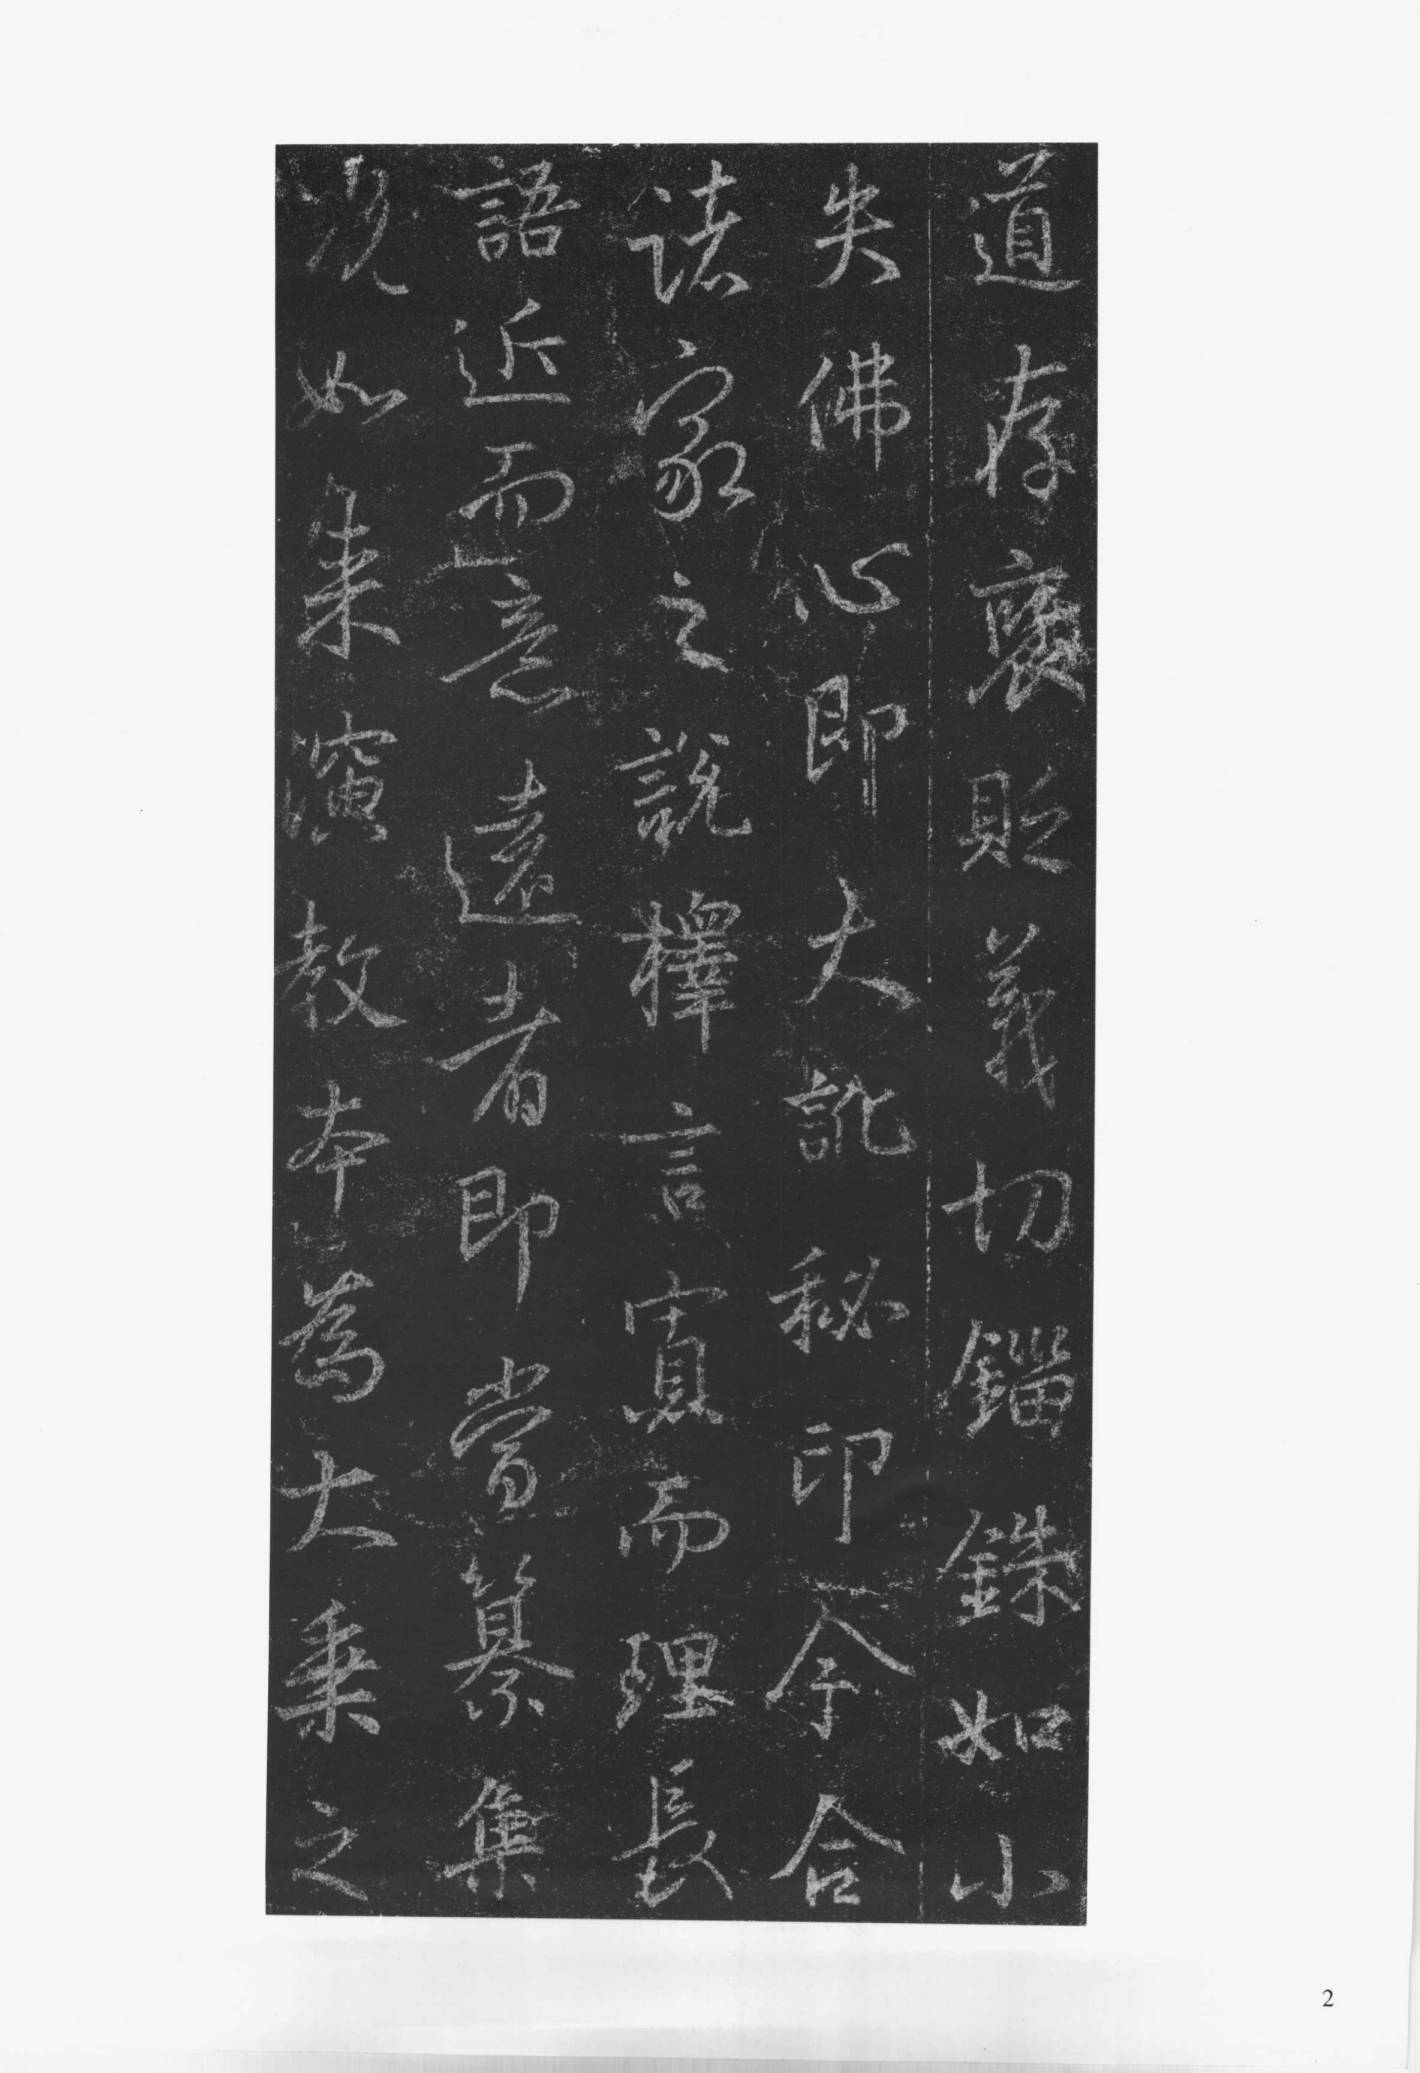 道存褒貶義切錙銖如小
失佛心即大訛秘印今合
諸家之說釋言寡而理長
語近而意遠者即當纂集
況如來演教本為大乘之
2